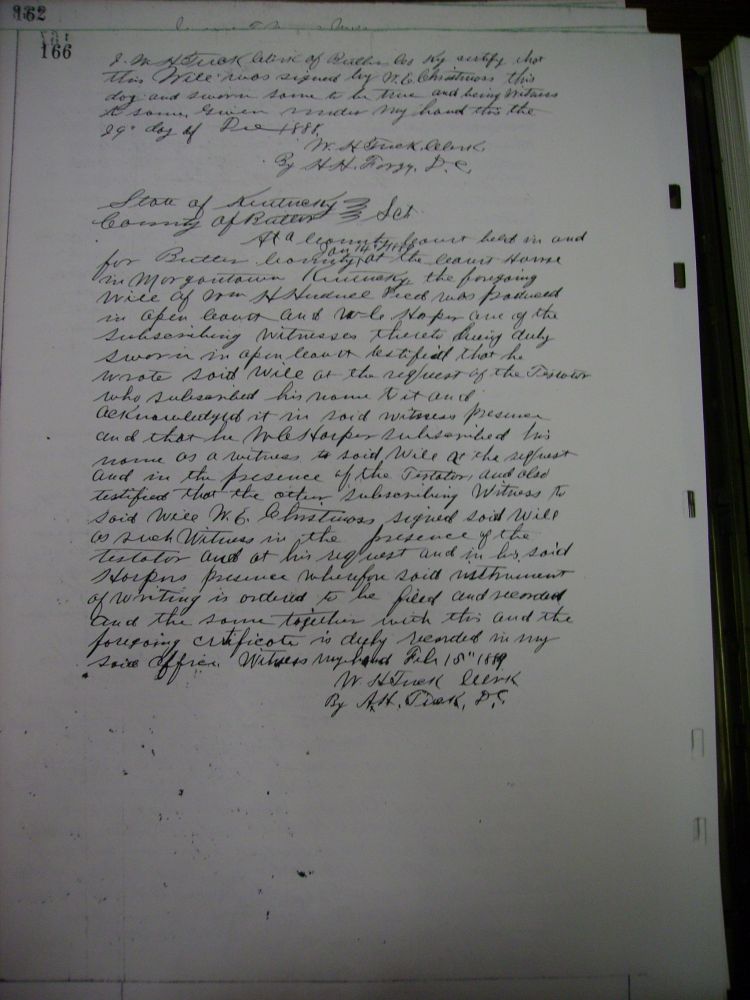 162
166
I W. H Tuck Clerk of Butler Co Ky certify that
this Will was signed by W. E. Christmass this
day and sworn same to be true and being Witness
to same, Given under my hand this the
29" day of Dec 1888,
W. H Tuck Clerk
By H H. Forgy, D. C.
State of Kentucky
County of Butler Sct
At a County Court held in and
for Butler County, Jan 14" 1889 at the Court House
in Morgantown Kentucky, the foregoing
Will of Wm H Hudnell Decd was produced
in open Court and W C Harper one of the
subscribing witnesses thereto being duly
sworn in open Court testified that he
wrote said Will at the request of the Testator
who subscribed his name to it and
acknowledged it in said witness presence
and that he W C Harper subscribed his
name as a witness to said Will at the request
and in the presence of the Testator, and also
testified that the other subscribing Witness to
said Will W. E. Christmass signed said Will
as such Witness in the presence of the
testator and at his request and in his said
Harpers presence wherefore said instrument
of writing is ordered to be filed and recorded
and the same together with this and the
foregoing certificate is duly recorded in my
said office. Witness my hand Feb 15" 1889
W. H Tuck Clerk
By A. H. Tuck, D. C.